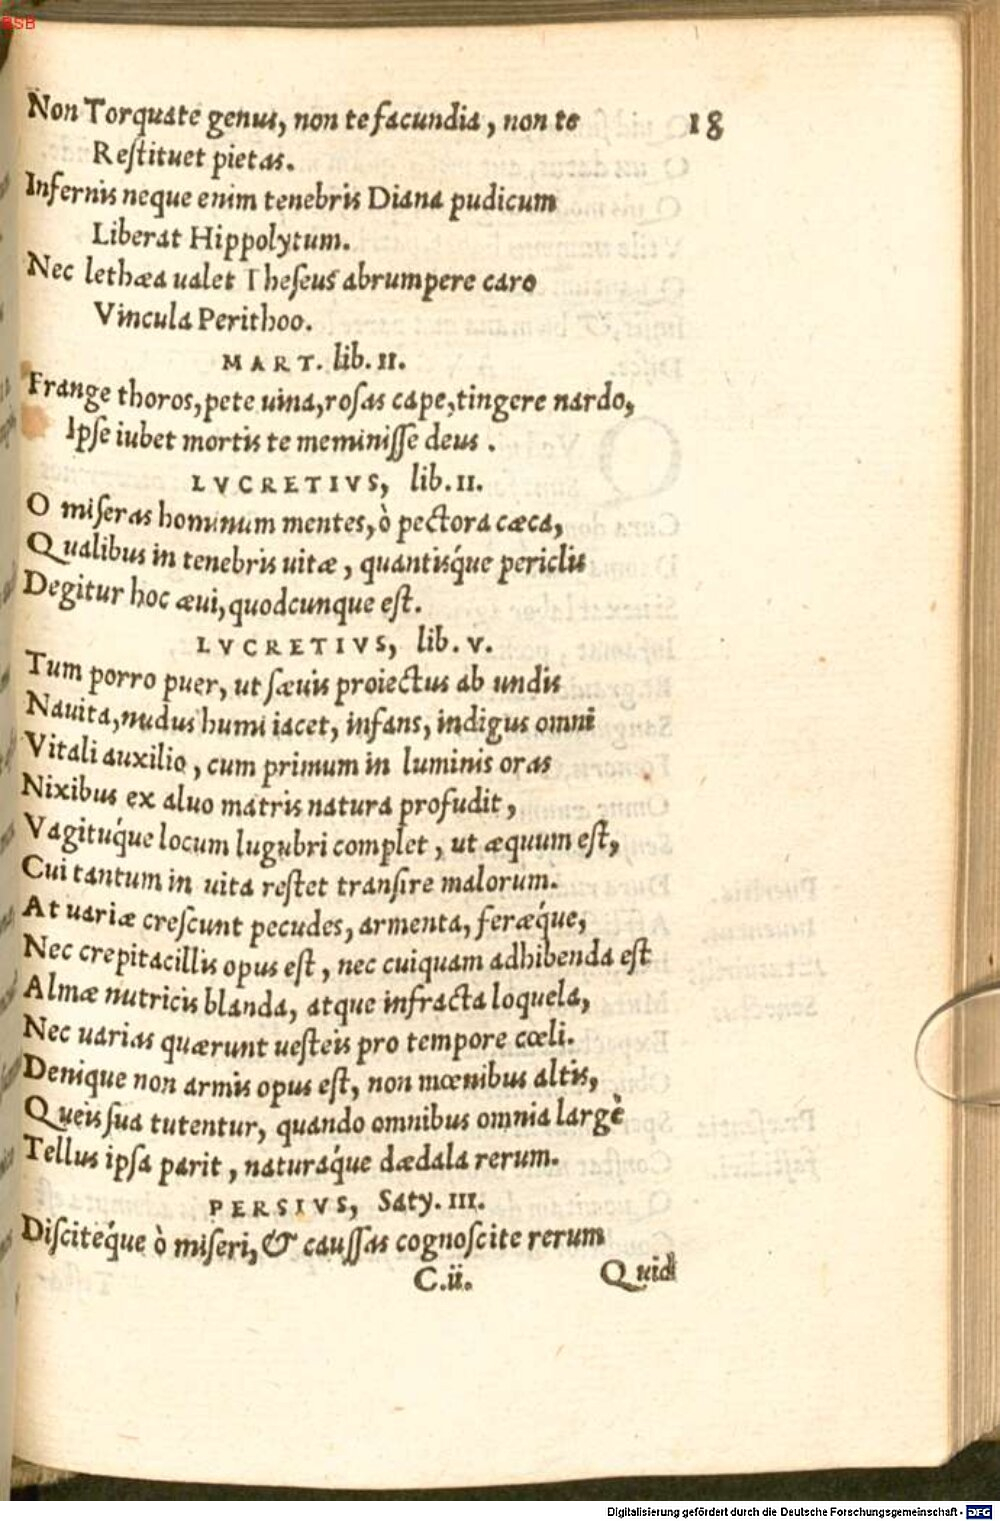 BSB
Non Torquate genus, non te facundia, non te 18
Reſtituet pietas.
Infernis neque enim tenebris Diana pudicum
Liberat Hippolytum.
Nec lethæa ualet Theſeus abrumpere caro
Vincula Perithoo.
MART. lib. II.
Frange thoros, pete uina, roſas cape, tingere nardo,
Ipſe iubet mortis te meminiſſe deus.
LVCRETIVS, lib. II.
O miſeras hominum mentes, ò pectora cæca,
Qualibus in tenebris uitæ, quantisq́ue periclis
Degitur hoc æui, quodcunque eſt.
LVCRETIVS, lib. V.
Tum porro puer, ut ſæuis proiectus ab undis
Nauita, nudus humi iacet, infans, indigus omni
Vitali auxilio, cum primum in luminis oras
Nixibus ex aluo matris natura profudit,
Vagituq́ue locum lugubri complet, ut æquum eſt,
Cui tantum in uita reſtet tranſire malorum.
At uariæ creſcunt pecudes, armenta, feræq́ue,
Nec crepitacillis opus eſt, nec cuiquam adhibenda eſt
Almæ nutricis blanda, atque infracta loquela,
Nec uarias quærunt ueſteis pro tempore cœli.
Denique non armis opus eſt, non mœnibus altis,
Queis ſua tutentur, quando omnibus omnia largè
Tellus ipſa parit, naturaq́ue dædala rerum.
PERSIVS, Saty. III.
Diſciteq́ue ò miſeri, & cauſſas cognoſcite rerum
C.ii. Quid
Digitalisierung gefördert durch die Deutsche Forschungsgemeinschaft - DFG